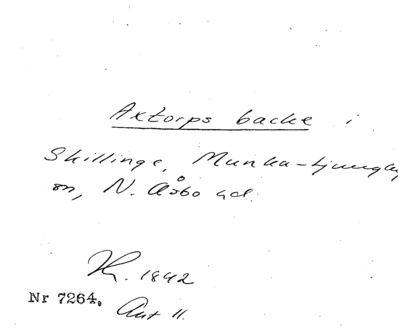 Axtorps backe i
Skillinge, Munka-Ljungby
sn, N. Åsbo hd.
Kr. 1842
Nr 7264. Aut 11.